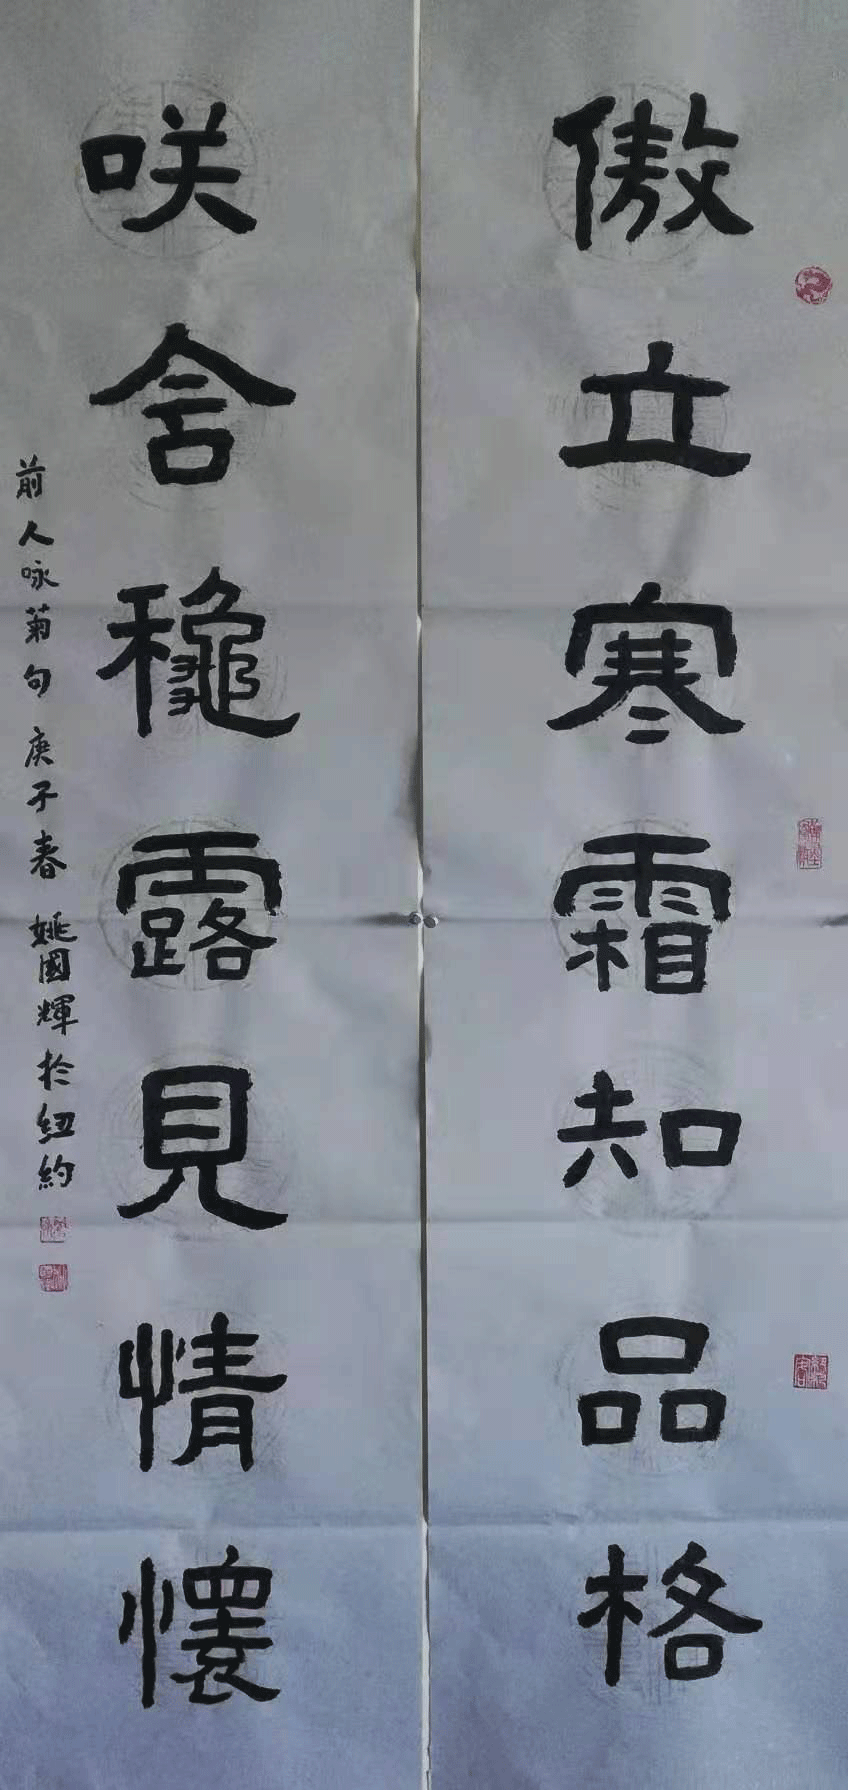 傲立寒霜知品格
咲含穐露見情懷
前人咏菊句庚子春姚國輝於紐約